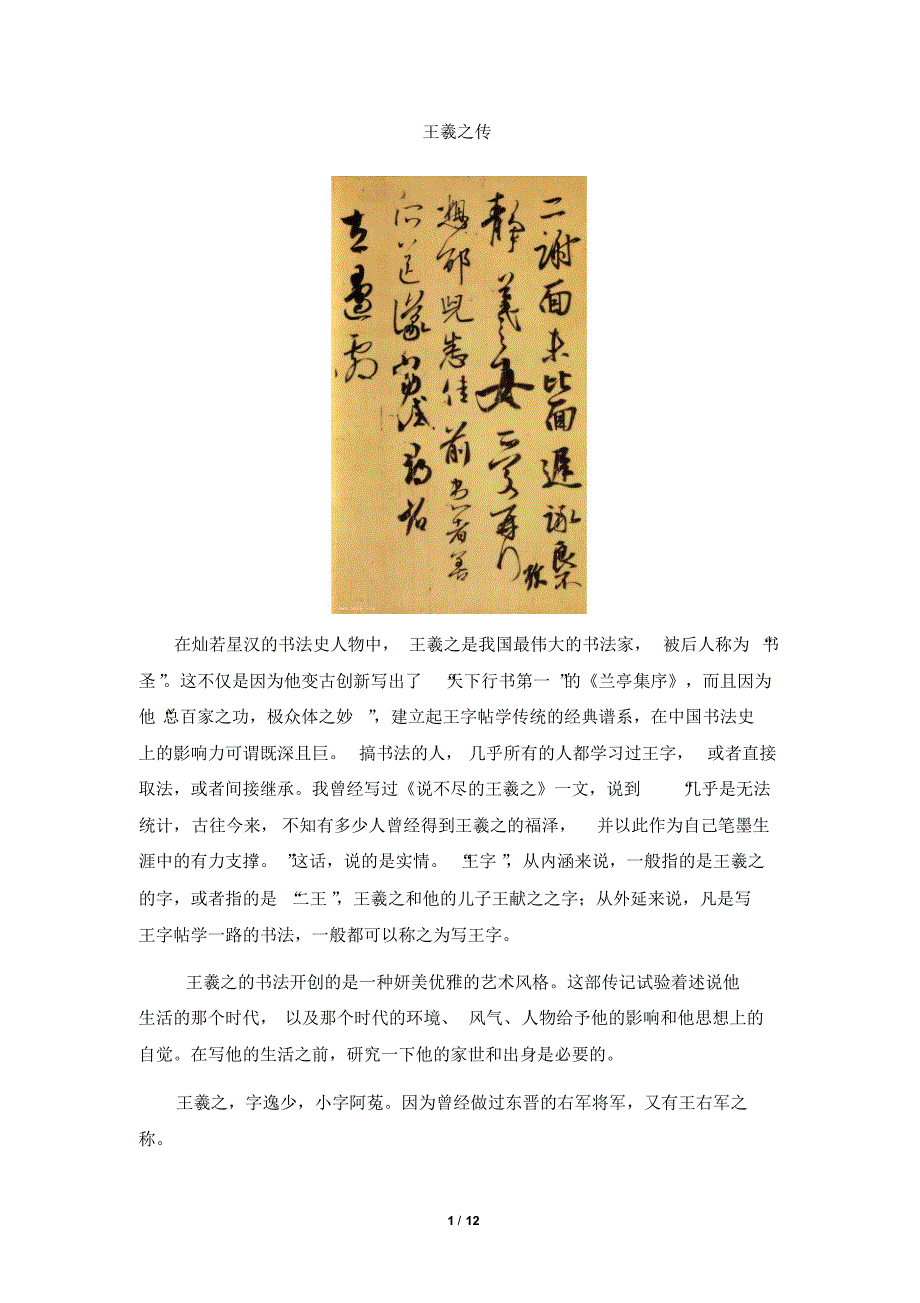 王羲之传
二謝面未比面遲詠良不
靜羲之女愛再拜
想邵兒悉佳前患者善
所送議當試尋省
左邊劇
在灿若星汉的书法史人物中， 王羲之是我国最伟大的书法家， 被后人称为 “书
圣”。这不仅是因为他变古创新写出了 “天下行书第一 ”的《兰亭集序》，而且因为
他 “总百家之功，极众体之妙 ”，建立起王字帖学传统的经典谱系，在中国书法史
上的影响力可谓既深且巨。 搞书法的人， 几乎所有的人都学习过王字， 或者直接
取法，或者间接继承。我曾经写过《说不尽的王羲之》一文，说到 “几乎是无法
统计，古往今来， 不知有多少人曾经得到王羲之的福泽， 并以此作为自己笔墨生
涯中的有力支撑。 ”这话，说的是实情。 “王字 ”，从内涵来说，一般指的是王羲之
的字，或者指的是 “二王 ”，王羲之和他的儿子王献之之字；从外延来说，凡是写
王字帖学一路的书法，一般都可以称之为写王字。
王羲之的书法开创的是一种妍美优雅的艺术风格。这部传记试验着述说他
生活的那个时代， 以及那个时代的环境、 风气、人物给予他的影响和他思想上的
自觉。在写他的生活之前，研究一下他的家世和出身是必要的。
王羲之，字逸少，小字阿菟。因为曾经做过东晋的右军将军，又有王右军之
称。
1 / 12